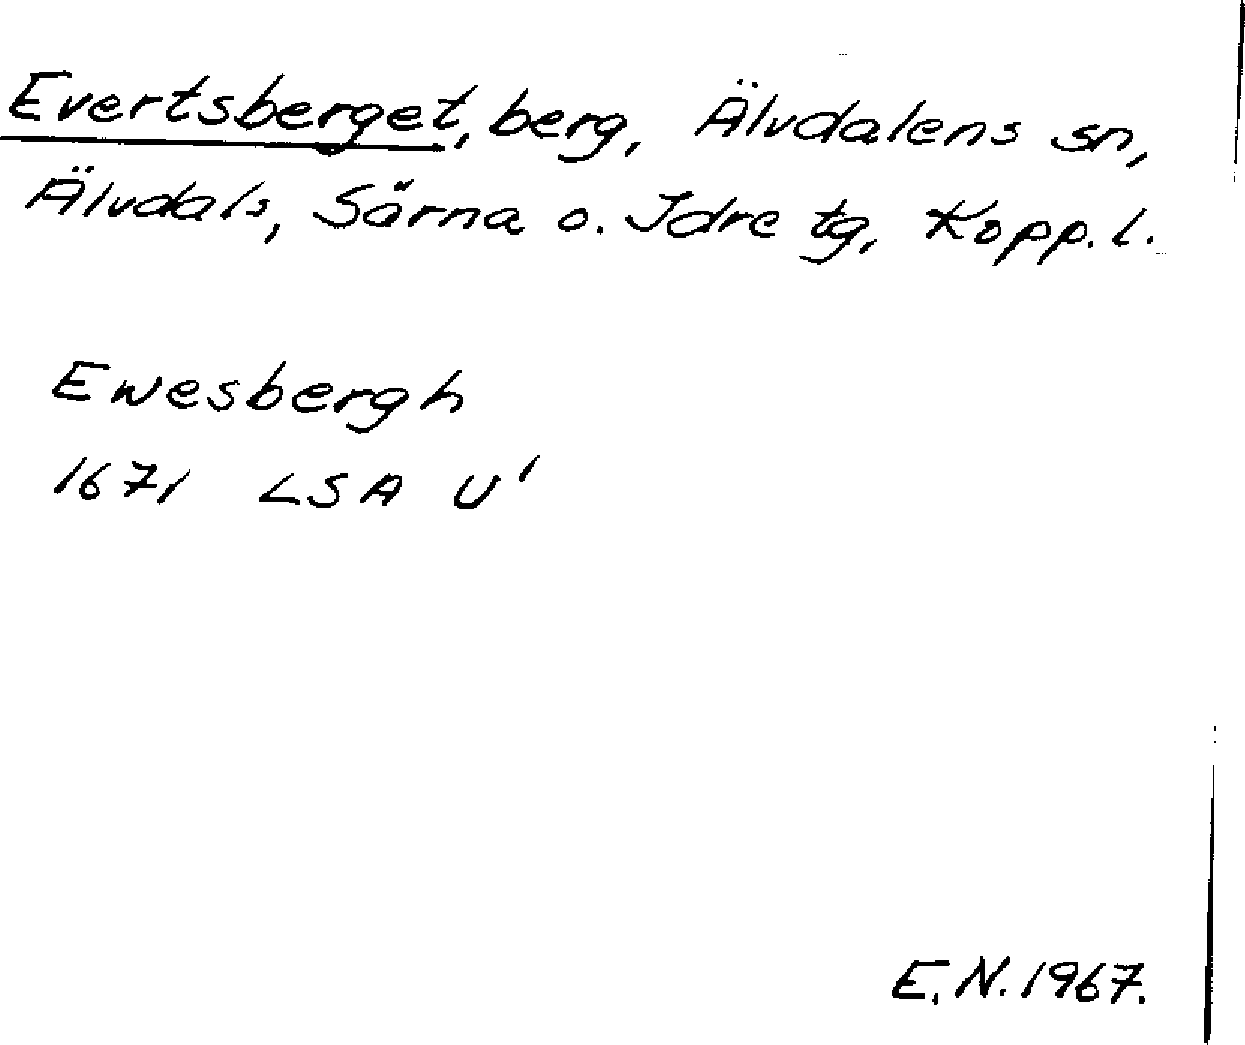 Evertsberget, berg, Älvdalens sn,
Älvdals, Särna o. Idre tg, Kopp. l.
Ewesbergh
1671 LSA U¹
E.N. 1967.